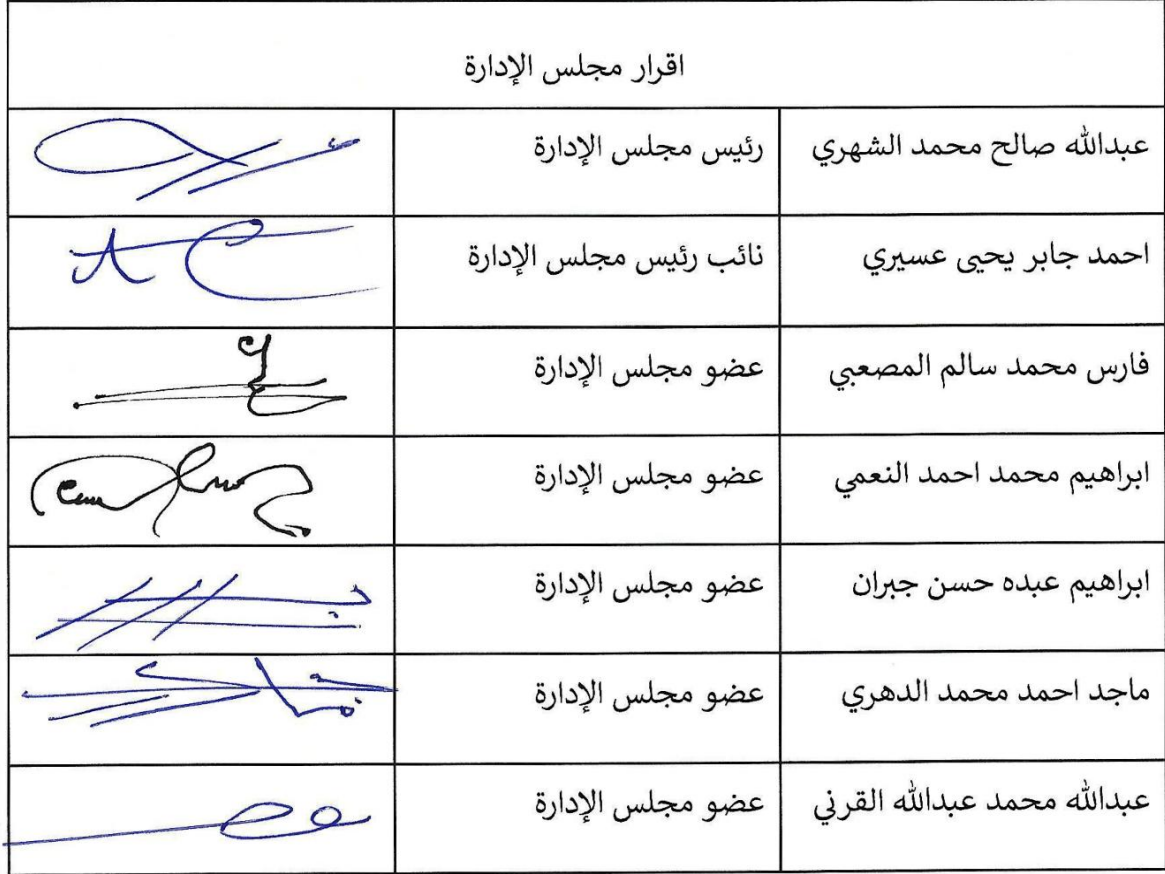 اقرار مجلس الإدارة
عبدالله صالح محمد الشهري رئيس مجلس الإدارة
احمد جابر يحيى عسيري نائب رئيس مجلس الإدارة
فارس محمد سالم المصعبي عضو مجلس الإدارة
ابراهيم محمد احمد النعمي عضو مجلس الإدارة
ابراهيم عبده حسن جبران عضو مجلس الإدارة
ماجد احمد محمد الدهري عضو مجلس الإدارة
عبدالله محمد عبدالله القرني عضو مجلس الإدارة